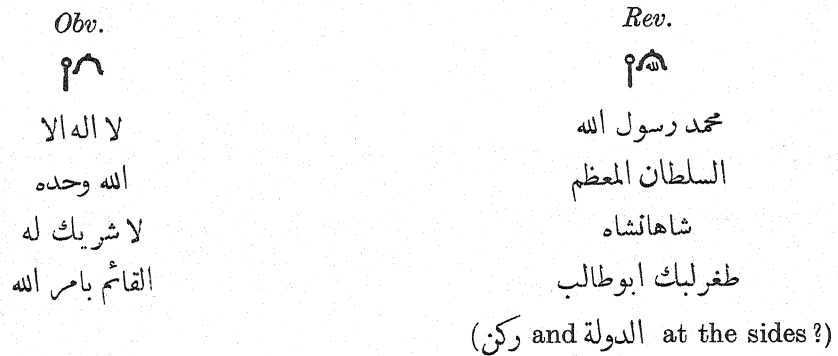 Obv.
لا اله الا
الله وحده
لا شريك له
القائم بامر الله
Rev.
لله
محمد رسول الله
السلطان المعظم
شاهانشاه
طغرلبك ابوطالب
(ركن and الدولة at the sides?)